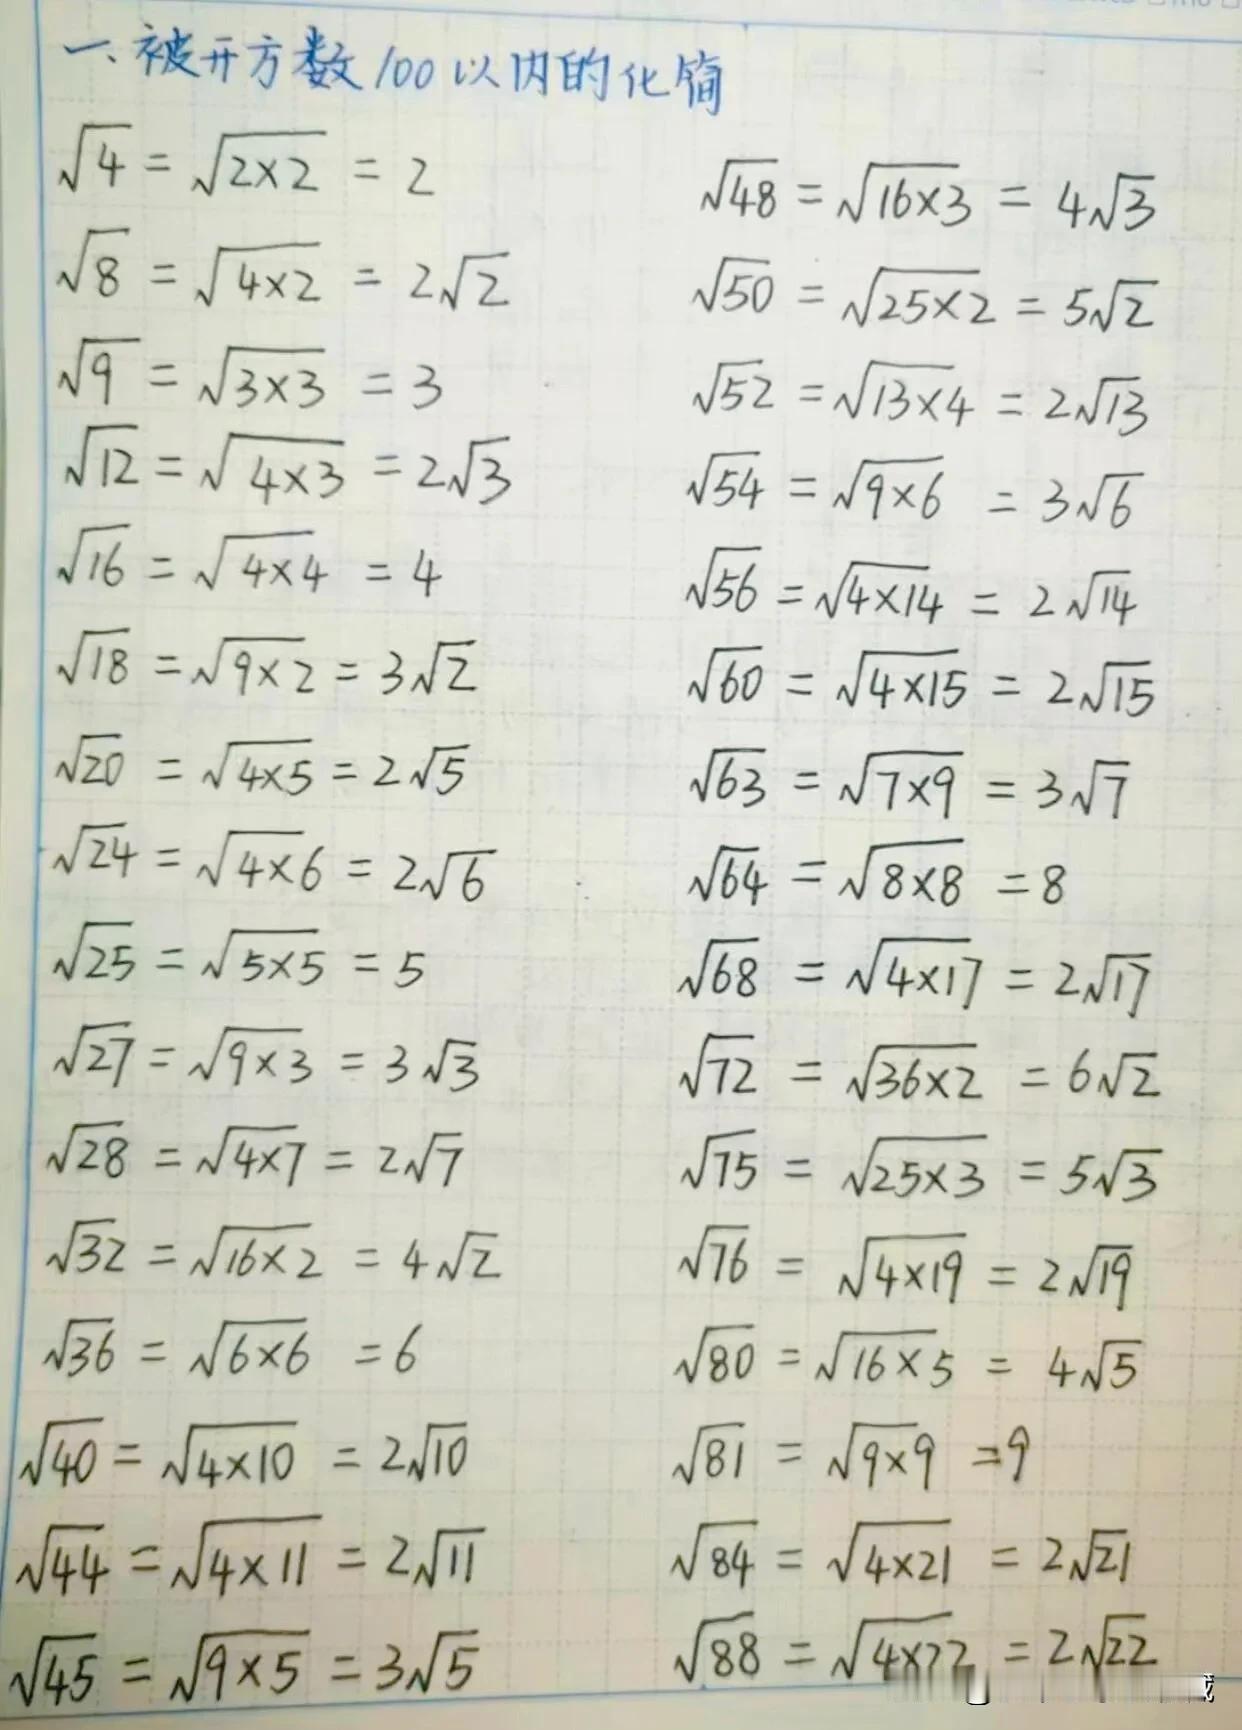 一、被开方数100以内的化简
√4 = √2×2 = 2
√8 = √4×2 = 2√2
√9 = √3×3 = 3
√12 = √4×3 = 2√3
√16 = √4×4 = 4
√18 = √9×2 = 3√2
√20 = √4×5 = 2√5
√24 = √4×6 = 2√6
√25 = √5×5 = 5
√27 = √9×3 = 3√3
√28 = √4×7 = 2√7
√32 = √16×2 = 4√2
√36 = √6×6 = 6
√40 = √4×10 = 2√10
√44 = √4×11 = 2√11
√45 = √9×5 = 3√5
√48 = √16×3 = 4√3
√50 = √25×2 = 5√2
√52 = √13×4 = 2√13
√54 = √9×6 = 3√6
√56 = √4×14 = 2√14
√60 = √4×15 = 2√15
√63 = √7×9 = 3√7
√64 = √8×8 = 8
√68 = √4×17 = 2√17
√72 = √36×2 = 6√2
√75 = √25×3 = 5√3
√76 = √4×19 = 2√19
√80 = √16×5 = 4√5
√81 = √9×9 = 9
√84 = √4×21 = 2√21
√88 = √4×22 = 2√22